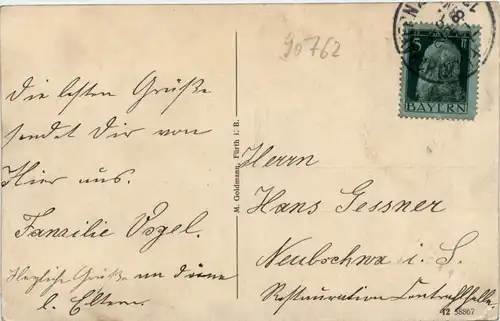 90762
5
BAYERN
Die besten Grüße
sendet Dir von
Hier aus.
Familie Vogel.
Herzliche Grüße an Deine
l. Eltern
M. Goldmann, Fürth i. B.
Herrn
Hans Gessner
i. S.
Restauration Centralhalle
12 58867